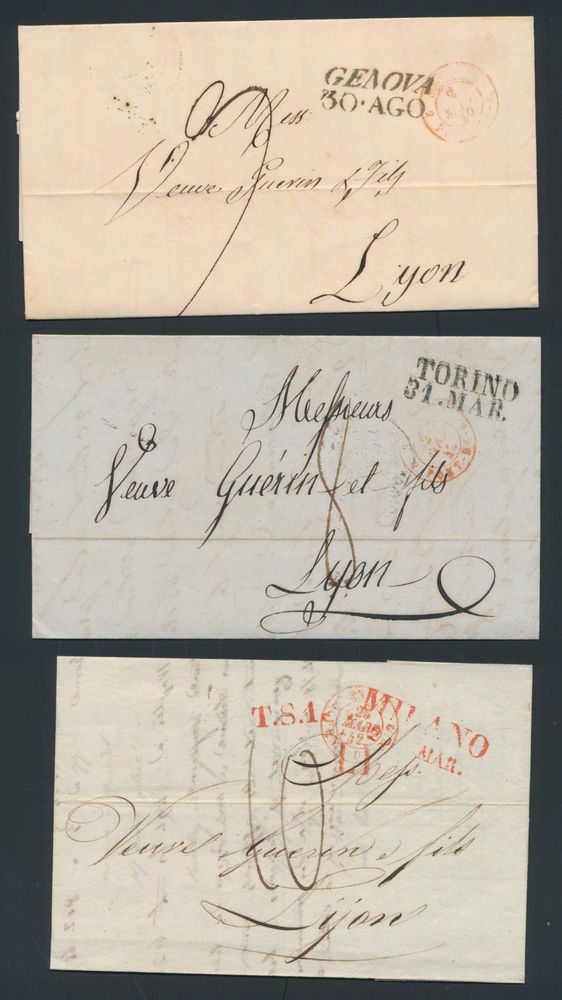 GENOVA
30·AGO
Mess
Veuve Guerin & Fils
9
Lyon
TORINO
31.MAR.
Messieurs
Veuve Guérin et fils
8
Lyon
T.S.1
MILANO
MAR.
Mess.
Veuve Guerin e fils
10
Lyon